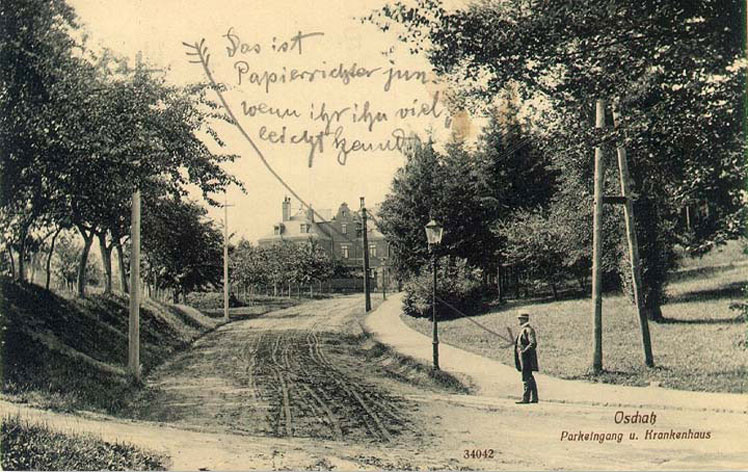 Das ist
Papierrichter jun.
wenn ihr ihn viel
leicht kennt
Oschatz
Parkeingang u. Krankenhaus
34042